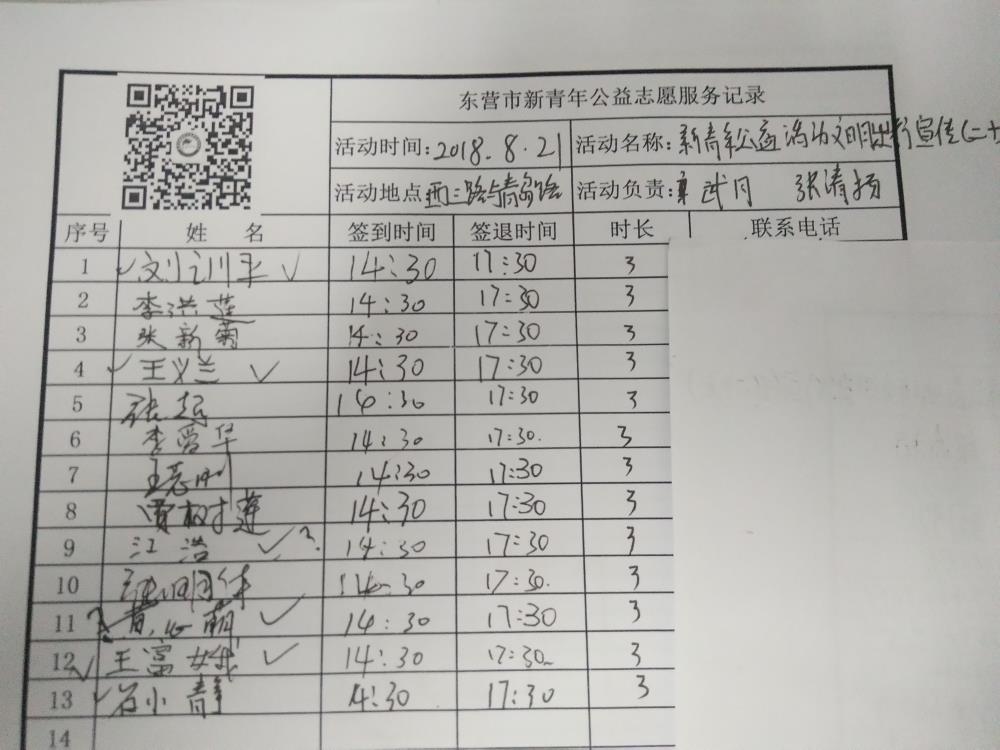 东营市新青年公益志愿服务记录
活动时间:2018.8.21 活动名称:新青年公益活动文明出行宣传(二十
活动地点 西三路与青岛路 活动负责: 武月 张清扬
序号 姓 名 签到时间 签退时间 时长 联系电话
1 ✓刘训平✓ 14:30 17:30 3
2 李洪莲 14:30 17:30 3
3 张新菊 14:30 17:30 3
4 ✓王义兰 ✓ 14:30 17:30 3
5 张超 14:30 17:30 3
6 李爱华 14:30 17:30. 3
7 王志刚 14:30 17:30 3
8 贾树莲 14:30 17:30 3
9 江浩 ✓?. 14:30 17:30 3
10 14:30 17:30. 3
11 ? ✓ 14:30 17:30 3
12 ✓王富娥 ✓ 14:30 17:30 3
13 ✓石小静 14:30 17:30 3
14